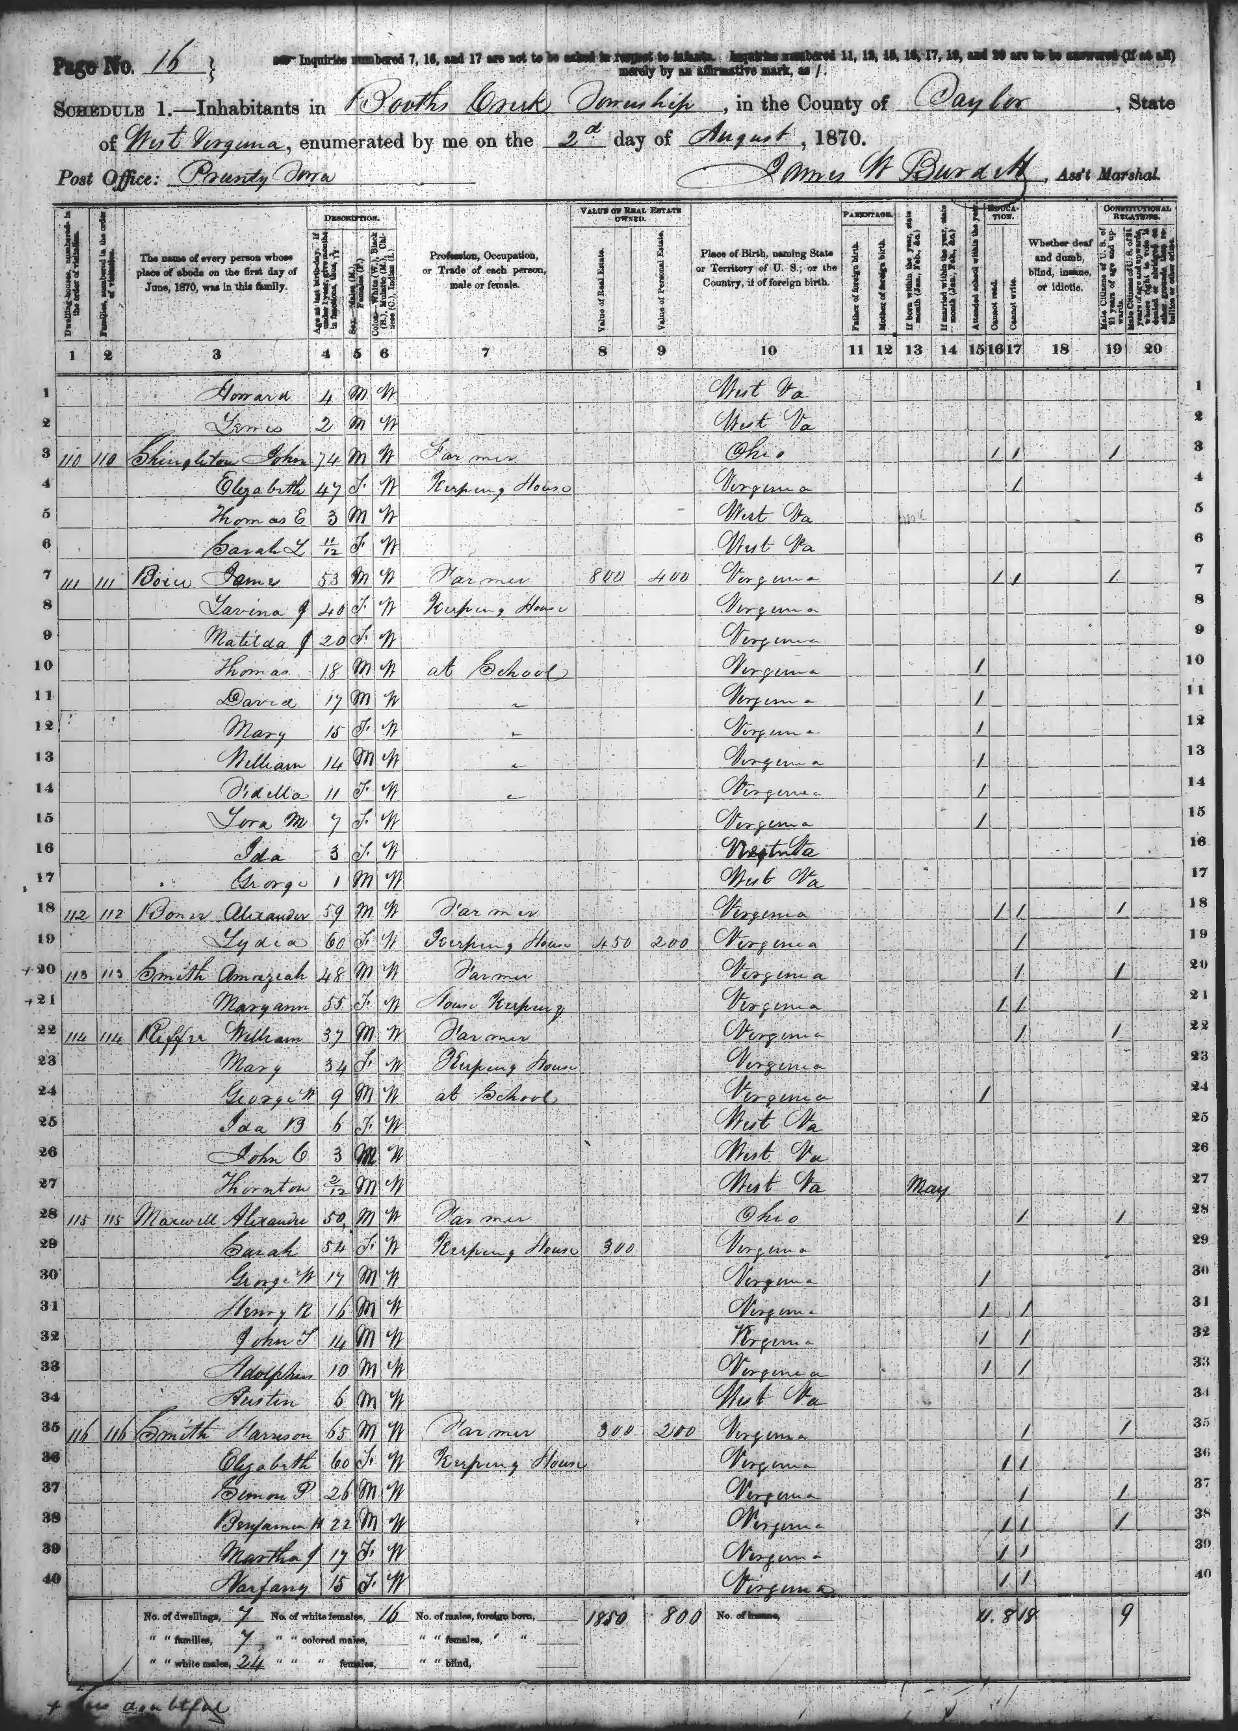 Page No. 16 } Inquiries numbered 7, 16, and 17 are not to be asked in respect to infants. Inquiries numbered 11, 12, 15, 16, 17, 19, and 20 are to be answered (if at all)
merely by an affirmative mark, as /.
SCHEDULE 1.—Inhabitants in Booths Creek Township, in the County of Taylor, State
of West Virginia, enumerated by me on the 2d day of August, 1870.
Post Office: Prunty Town James W Burdett, Ass't Marshal.
DESCRIPTION. VALUE OF REAL ESTATE OWNED. PARENTAGE. EDUCATION. CONSTITUTIONAL RELATIONS.
Dwelling-houses, numbered in the order of visitation.
Families, numbered in the order of visitation.
The name of every person whose place of abode on the first day of June, 1870, was in this family.
Age at last birth-day. If under 1 year, give months in fractions, thus, 3/12
Sex.—Males (M.), Females (F.)
Color.—White (W.), Black (B.), Mulatto (M.), Chinese (C.), Indian (I.)
Profession, Occupation, or Trade of each person, male or female.
Value of Real Estate.
Value of Personal Estate.
Place of Birth, naming State or Territory of U. S.; or the Country, if of foreign birth.
Father of foreign birth.
Mother of foreign birth.
If born within the year, state month (Jan., Feb., &c.)
If married within the year, state month (Jan., Feb., &c.)
Attended school within the year.
Cannot read.
Cannot write.
Whether deaf and dumb, blind, insane, or idiotic.
Male Citizens of U. S. of 21 years of age and upwards.
Male Citizens of U. S. of 21 years of age and upwards, where right to vote is denied or abridged on other grounds than rebellion or other crime.
1 2 3 4 5 6 7 8 9 10 11 12 13 14 15 16 17 18 19 20
1 Howard 4 M W West Va 1
2 Lewis 2 M W West Va 2
3 110 110 Shingleton John 74 M W Farmer Ohio / / / 3
4 Elizabeth 47 F W Keeping House Virginia / 4
5 Thomas E 3 M W West Va 5
6 Sarah L 11/12 F W West Va 6
7 111 111 Boice James 53 M W Farmer 800 400 Virginia / / / 7
8 Lavina J 40 F W Keeping House Virginia 8
9 Matilda J 20 F W Virginia 9
10 Thomas 18 M W at School Virginia / 10
11 David 17 M W " Virginia / 11
12 Mary 15 F W " Virginia / 12
13 William 14 M W " Virginia / 13
14 Fidella 11 F W " Virginia / 14
15 Lora M 7 F W Virginia / 15
16 Ida 3 F W West Va 16
17 George 1 M W West Va 17
18 112 112 Boner Alexander 59 M W Farmer Virginia / / / 18
19 Lydia 60 F W Keeping House 450 200 Virginia / 19
+20 113 113 Smith Amaziah 48 M W Farmer Virginia / / 20
+21 Maryann 55 F W House Keeping Virginia / / 21
22 114 114 Riffee William 37 M W Farmer Virginia / / 22
23 Mary 34 F W Keeping House Virginia 23
24 George W 9 M W at School Virginia / 24
25 Ida B 6 F W West Va 25
26 John C 3 M W West Va 26
27 Thornton 2/12 M W West Va May 27
28 115 115 Maxwell Alexander 50 M W Farmer Ohio / / 28
29 Sarah 54 F W Keeping House 300 Virginia 29
30 George W 17 M W Virginia / 30
31 Henry R 16 M W Virginia / / 31
32 John T 14 M W Virginia / / 32
33 Adolphus 10 M W Virginia / / 33
34 Austin 6 M W West Va 34
35 116 116 Smith Harrison 65 M W Farmer 300 200 Virginia / / 35
36 Elizabeth 60 F W Keeping House Virginia / / 36
37 Simon P 26 M W Virginia / / 37
38 Benjamin H 22 M W Virginia / / / 38
39 Martha J 17 F W Virginia / / 39
40 Narfany 15 F W Virginia / / 40
No. of dwellings, 7 No. of white females, 16 No. of males, foreign born, 1850 800 No. of insane, 11 8 18 9
" " families, 7 " " colored males, " " females, " "
" " white males, 24 " " " females, " " blind,
+ doubtful